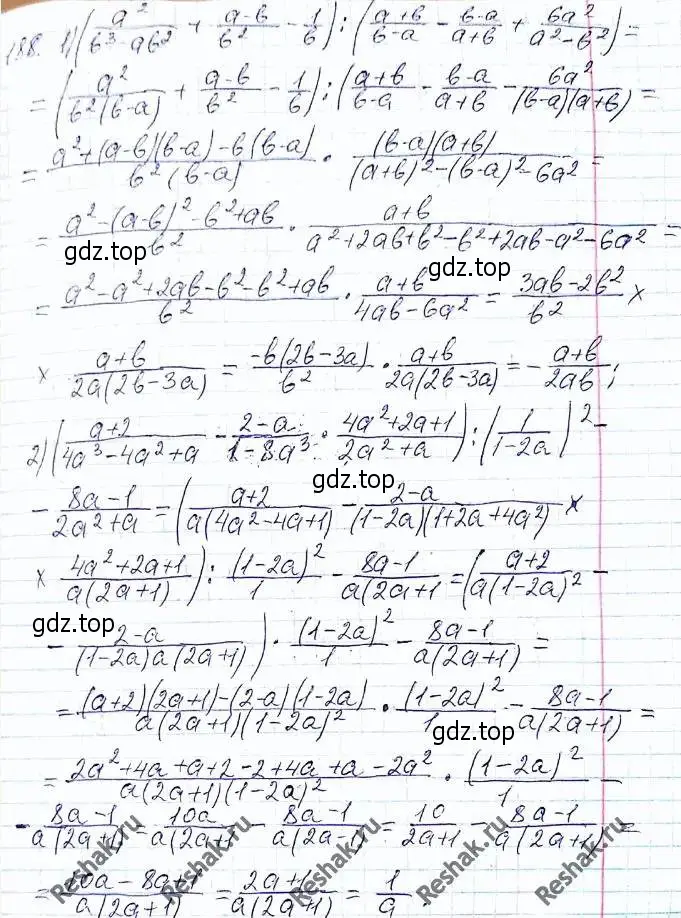 188. 1) (a²/(b³-ab²) + (a-b)/b² - 1/b) : ((a+b)/(b-a) - (b-a)/(a+b) + 6a²/(a²-b²)) =
= (a²/(b²(b-a)) + (a-b)/b² - 1/b) : ((a+b)/(b-a) - (b-a)/(a+b) - 6a²/((b-a)(a+b))) =
= (a²+(a-b)(b-a)-b(b-a))/(b²(b-a)) · ((b-a)(a+b))/((a+b)²-(b-a)²-6a²) =
= (a²-(a-b)²-b²+ab)/b² · (a+b)/(a²+2ab+b²-b²+2ab-a²-6a²) =
gdz.top
gdz.top
= (a²-a²+2ab-b²-b²+ab)/b² · (a+b)/(4ab-6a²) = (3ab-2b²)/b² ×
× (a+b)/(2a(2b-3a)) = (-b(2b-3a))/b² · (a+b)/(2a(2b-3a)) = -(a+b)/(2ab);
2) ((a+2)/(4a³-4a²+a) - (2-a)/(1-8a³) · (4a²+2a+1)/(2a²+a)) : (1/(1-2a))² -
gdz.top
- (8a-1)/(2a²+a) = ((a+2)/(a(4a²-4a+1)) - (2-a)/((1-2a)(1+2a+4a²)) ×
× (4a²+2a+1)/(a(2a+1))) : (1-2a)²/1 - (8a-1)/(a(2a+1) = ((a+2)/(a(1-2a)² -
gdz.top
- (2-a)/((1-2a)a(2a+1))) · (1-2a)²/1 - (8a-1)/(a(2a+1)) =
= ((a+2)(2a+1)-(2-a)(1-2a))/(a(2a+1)(1-2a)²) · (1-2a)²/1 - (8a-1)/(a(2a+1)) =
gdz.top
= (2a²+4a+a+2-2+4a+a-2a²)/(a(2a+1)(1-2a)²) · (1-2a)²/1 -
- (8a-1)/(a(2a+1)) = 10a/(a(2a+1) - (8a-1)/(a(2a-1)) = 10/(2a+1) - (8a-1)/(a(2a+1)) =
= (10a-8a+1)/(a(2a+1)) = (2a+1)/(a(2a+1)) = 1/a.
Reshak.ru
Reshak.ru
Reshak.ru
Reshak.ru